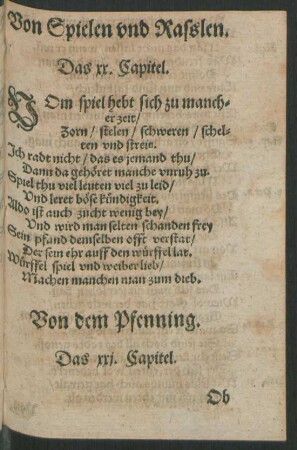 Von Spielen vnd Rasslen.
Das xx. Capitel.
VOm spiel hebt sich zu manch-
er zeit/
Zorn/ stelen/ schweren/ schel-
ten vnd streit.
Ich radt nicht/ das es jemand thu/
Dann da gehöret manche vnruh zu.
Spiel thu viel leuten viel zu leid/
Vnd leret böse kündigkeit.
Aldo ist auch zucht wenig bey/
Vnd wird man selten schanden frey
Sein pfand demselben offt verstat/
Der sein ehr auff den würffel lat.
Würffel spiel vnd weiber lieb/
Machen manchen man zum dieb.
Von dem Pfenning.
Das xxj. Capitel.
Ob